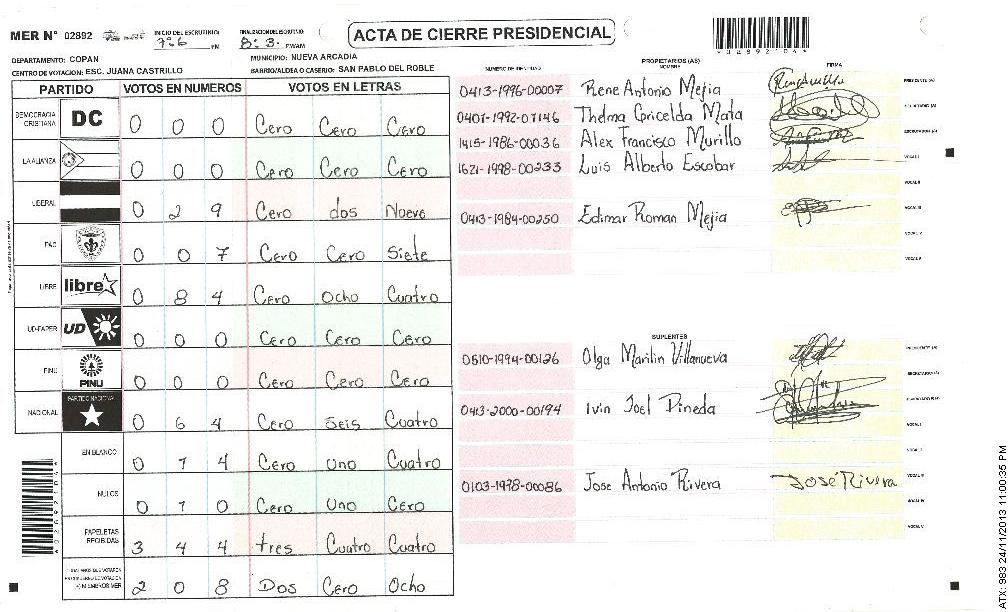 MER N° 02892
INICIO DEL ESCRUTINIO: 7:6 PM
FINALIZACION DEL ESCRUTINIO: 8:3. PM/AM
ACTA DE CIERRE PRESIDENCIAL
DEPARTAMENTO: COPAN
MUNICIPIO: NUEVA ARCADIA
CENTRO DE VOTACION: ESC. JUANA CASTRILLO
BARRIO/ALDEA O CASERIO: SAN PABLO DEL ROBLE
PARTIDO VOTOS EN NUMEROS VOTOS EN LETRAS
DEMOCRACIA CRISTIANA DC 0 0 0 Cero Cero Cero
LA ALIANZA 0 0 0 Cero Cero Cero
LIBERAL 0 29 Cero dos Nueve
PAC 0 0 7 Cero Cero Siete
LIBRE libre 0 8 4 Cero Ocho Cuatro
UD-FAPER UD 0 0 0 Cero Cero Cero
PINU PINU 0 0 0 Cero Cero Cero
NACIONAL PARTIDO NACIONAL 0 6 4 Cero Seis Cuatro
EN BLANCO 0 1 4 Cero Uno Cuatro
NULOS 0 1 0 Cero Uno Cero
PAPELETAS RECIBIDAS 3 4 4 tres Cuatro Cuatro
(+) MIEMBROS MER 2 0 8 Dos Cero Ocho
NUMERO DE IDENTIDAD PROPIETARIOS (AS) NOMBRE FIRMA
0413-1996-00007 Rene Antonio Mejia PRESIDENTE (A)
0401-1992-01146 Thelma Gricelda Mata SECRETARIO (A)
1415-1986-00036 Alex Francisco Murillo ESCRUTADOR (A)
1621-1998-00233 Luis Alberto Escobar VOCAL I
VOCAL II
0413-1984-00250 Edimar Roman Mejia VOCAL III
VOCAL IV
VOCAL V
SUPLENTES
0510-1994-00126 Olga Marilin Villanueva PRESIDENTE (A)
SECRETARIO (A)
0413-2000-00194 Ivin Joel Pineda ESCRUTADOR (A)
VOCAL I
VOCAL II
0103-1998-00086 Jose Antonio Rivera José Rivera VOCAL III
VOCAL IV
VOCAL V
ATX: 983 24/11/2013 11:00:35 PM